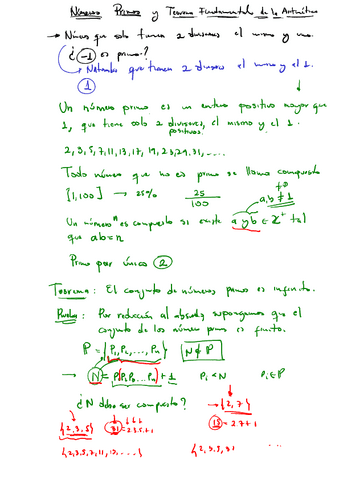 Números Primos y Teorema Fundamental de la Aritmética
→ Números que solo tienen 2 divisores el mismo y uno.
¿ -1 es primo?
→ Naturales que tienen 2 divisores el mismo y el 1.
1
Un número primo es un entero positivo mayor que
1, que tiene solo 2 divisores, el mismo y el 1.
positivos.
2, 3, 5, 7, 11, 13, 17, 19, 23, 29, 31, ....
Todo número que no es primo se llama compuesto
[1,100] → 25% 25/100
a,b ≠ 1
Un número n es compuesto si existe a y b ∈ Z⁺ tal
que ab=n
Primo par único 2
Teorema: El conjunto de números primos es infinito.
Prueba: Por reducción al absurdo, supongamos que el
conjunto de los números primos es finito.
P = {P₁, P₂, ..., Pₙ} N ∉ P
→ N = P₁P₂...Pₙ + 1 Pᵢ < N Pᵢ ∈ P
¿N debe ser compuesto? → {2, 7}
{2, 3, 5} 31 = 2·3·5+1 15 = 2·7+1
{2, 3, 5, 7, 11, 13, ...} {2, 3, 5, 31 ...